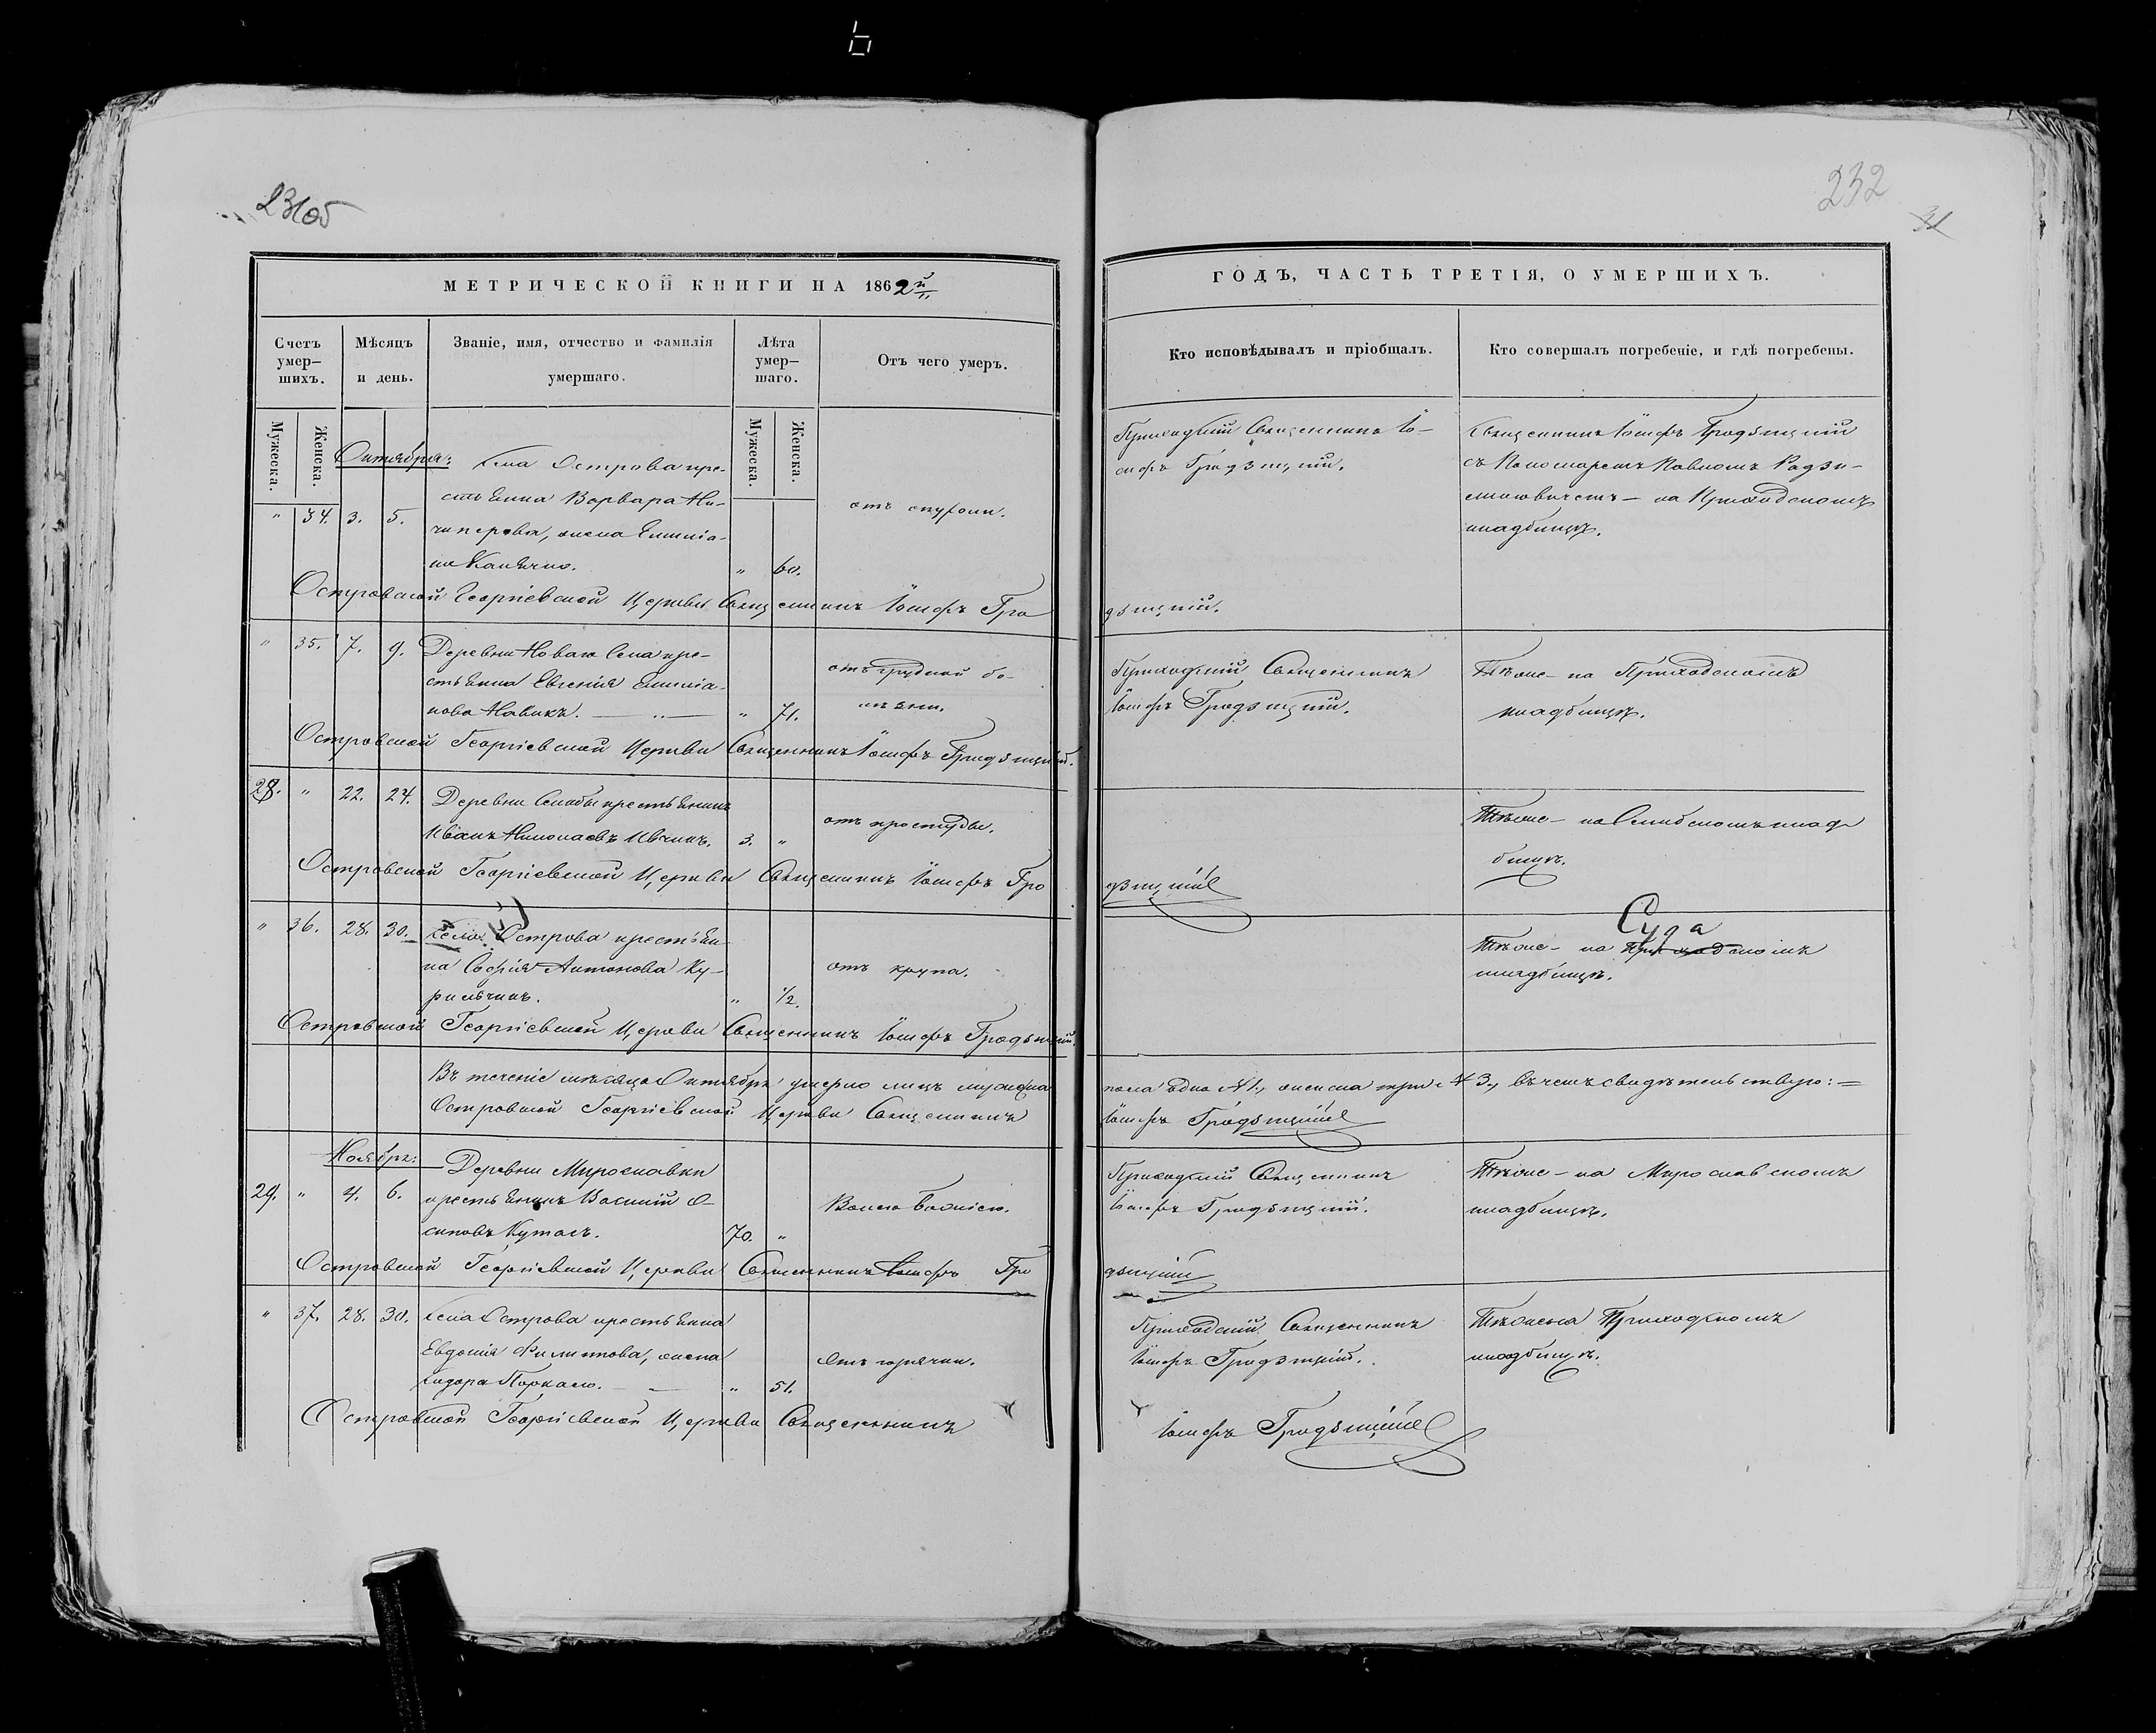 231об
232
31
МЕТРИЧЕСКОЙ КНИГИ НА 1862й
ГОДЪ, ЧАСТЬ ТРЕТІЯ, О УМЕРШИХЪ.
Счетъ умер-
шихъ.
Мѣсяцъ
и день.
Званіе, имя, отчество и фамилія
умершаго.
Лѣта
умер-
шаго.
Отъ чего умеръ.
Кто исповѣдывалъ и пріобщалъ.
Кто совершалъ погребеніе, и гдѣ погребены.
Мужеска.
Женска.
Мужеска.
Женска.
Октября:
" 34. 3. 5.
Села Острова кре-
стьянка Варвара Ни-
чипорова, жена Емилiа-
на
" 60.
отъ
Приходскій Священникъ Іо-
сифъ Гродзицкій.
Священникъ Іосифъ Гродзицкій
съ Пономаремъ Павломъ
на Приходскомъ
кладбищѣ.
Островской Георгіевской Церкви Священникъ Іосифъ Гро
дзицкій.
" 35. 7. 9.
Деревни Новаго Села кре-
стьянка Евгенія Емилiа-
нова Новикъ.
" 71.
отъ грудной бо-
лѣзни.
Приходскій Священникъ
Іосифъ Гродзицкій.
Тѣже - на Приходскомъ
кладбищѣ.
Островской Георгіевской Церкви Священникъ Іосифъ Гродзицкій.
28. " 22. 24.
Деревни крестьянинъ
Иванъ Николаевъ
3. "
отъ простуды.
Тѣже - на клад-
бищѣ.
Островской Георгіевской Церкви Священникъ Іосифъ Гро
дзицкій
" 36. 28. 30.
Села Острова крестьян-
ка Софія Антонова Ку-
рильчикъ.
" 1/2.
отъ крупа.
Суда
Тѣже - на Приходскомъ
кладбищѣ.
Островской Георгіевской Церкви Священникъ Іосифъ Гродзицкій.
Въ теченіе мѣсяца Октября умерло лицъ мужеска
пола одно № 1., женска три № 3., въ чемъ свидѣтельствую:
Островской Георгіевской Церкви Священникъ
Іосифъ Гродзицкій
Ноября:
29. " 4. 6.
Деревни Мирославки
крестьянинъ Василій О-
сиповъ
70. "
болѣзнію.
Приходскій Священникъ
Іосифъ Гродзицкій.
Тѣже - на Мирославскомъ
кладбищѣ.
Островской Георгіевской Церкви Священникъ Іосифъ Гро
дзицкій
" 37. 28. 30.
Села Острова крестьянка
Евдокія Филиппова, жена
" 51.
Отъ горячки.
Приходскій Священникъ
Іосифъ Гродзицкій.
Тѣже на Приходскомъ
кладбищѣ.
Островской Георгіевской Церкви Священникъ
Іосифъ Гродзицкій